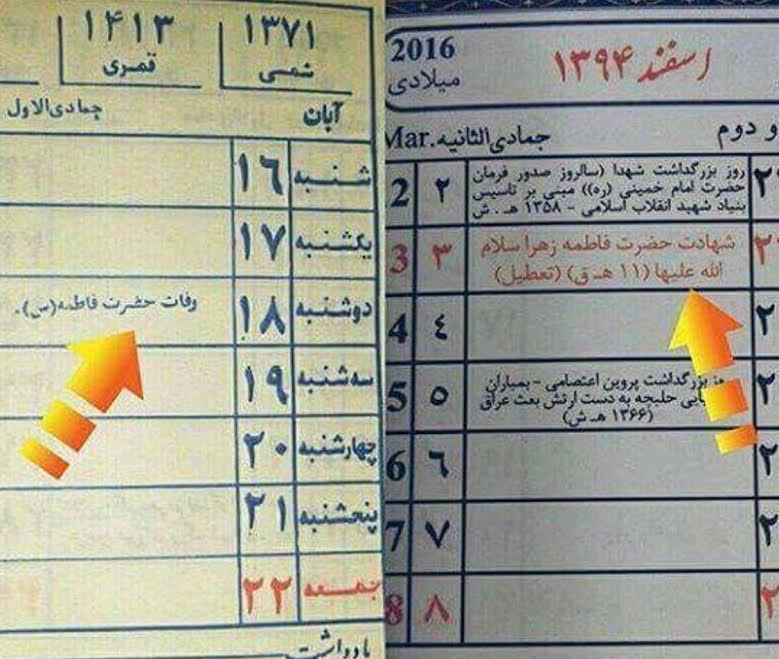 ۱۳۷۱
شمسی
۱۴۱۳
قمری
آبان
جمادی‌الاول
شنبه ۱۶
یکشنبه ۱۷
دوشنبه ۱۸ وفات حضرت فاطمه(س).
سه‌شنبه ۱۹
چهارشنبه ۲۰
پنجشنبه ۲۱
جمعه ۲۲
یادداشت
اسفند ۱۳۹۴
2016
میلادی
و دوم
جمادی الثانیه
Mar.
روز بزرگداشت شهدا (سالروز صدور فرمان
حضرت امام خمینی (ره)) مبنی بر تاسیس
بنیاد شهید انقلاب اسلامی - ۱۳۵۸ هـ . ش
۲ 2
شهادت حضرت فاطمه زهرا سلام
الله علیها (۱۱ هـ ق) (تعطیل)
۳ 3
٤ 4
بزرگداشت پروین اعتصامی - بمباران
حلبچه به دست ارتش بعث عراق
(۱۳۶۶ هـ ش)
۵ 5
٦ 6
۷ 7
۸ 8